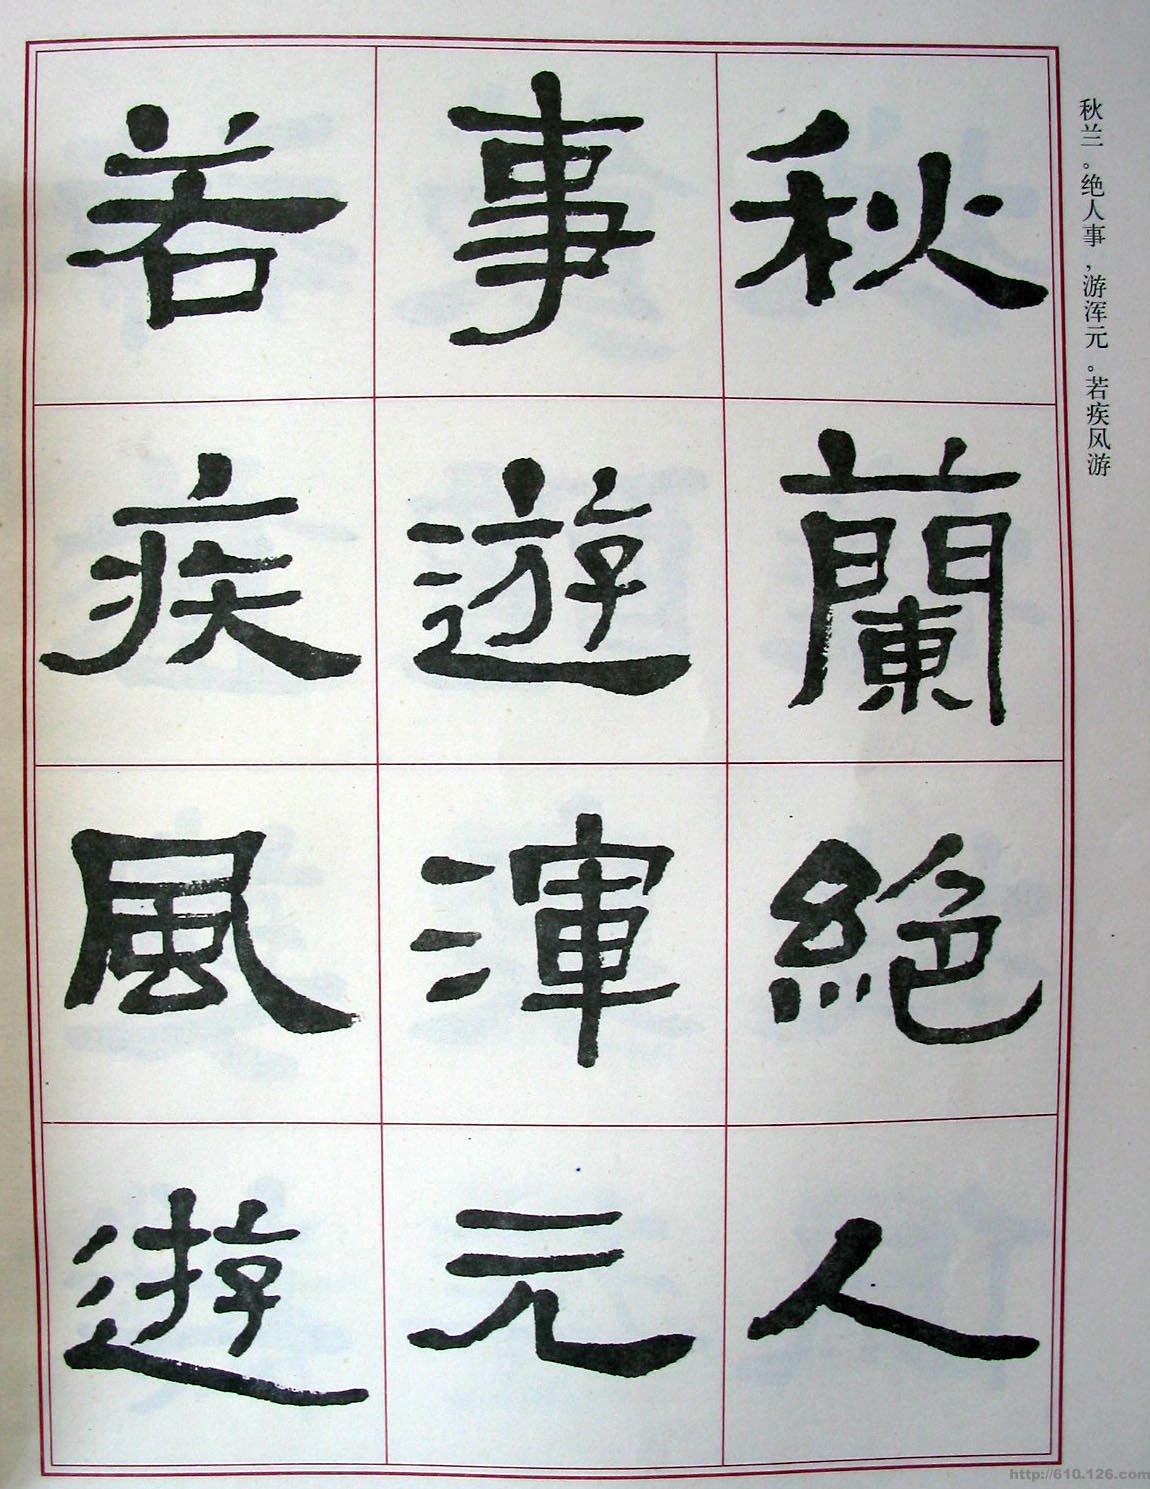 秋蘭絕人
事遊渾元
若疾風遊
秋兰。绝人事,游浑元。若疾风游
http://610.126.com